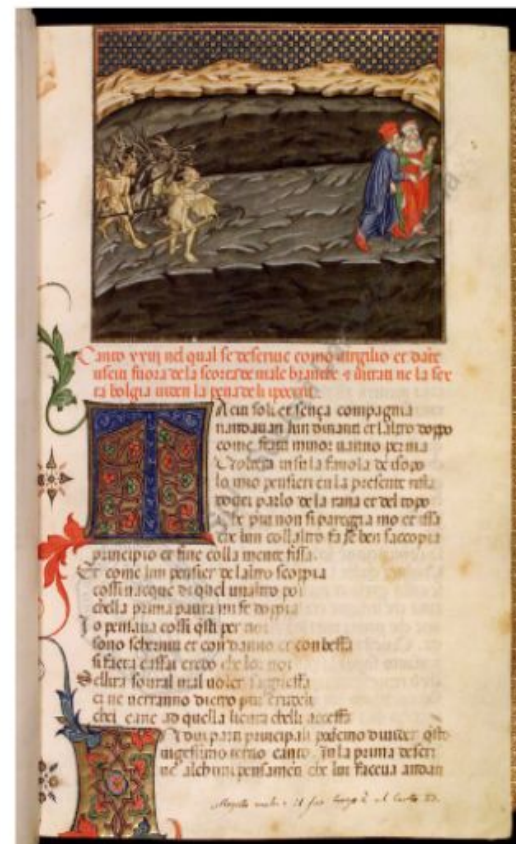 Canto xxiij nel qual se descriue como uirgilio et dante
usciti fuora de la scorta de male branche & intrati ne la sex
ta bolgia uiden la pena de li ypocriti
Taciti soli et sença compagnia
nandauan lun dinanti et laltro dopo
come frati minor uanno per uia
Volto era in su la fauola de isopo
lo mio pensier en la presente rissa
douei parlo de la rana et del topo
che piu non si pareggia mo et issa
che lun collaltro fa se ben saccopia
principio et fine colla mente fissa
Et come lun pensier de laltro scoppia
cossi nacque di quel unaltro poi
chella prima paura mi fe doppia
Io pensaua cossi qsti per noi
sono scherniti et con danno et con beffa
si facta cassai credo che lor noi
Se lira soural mal uoler saguieffa
ei ne uerranno dietro piu crudeli
chel cane ad quella lieura chelli acceffa
In dui parti principali posemo diuider qsto
uigessimo terno canto. In la prima descri
ue alchuni pensamen che lui faceua andan